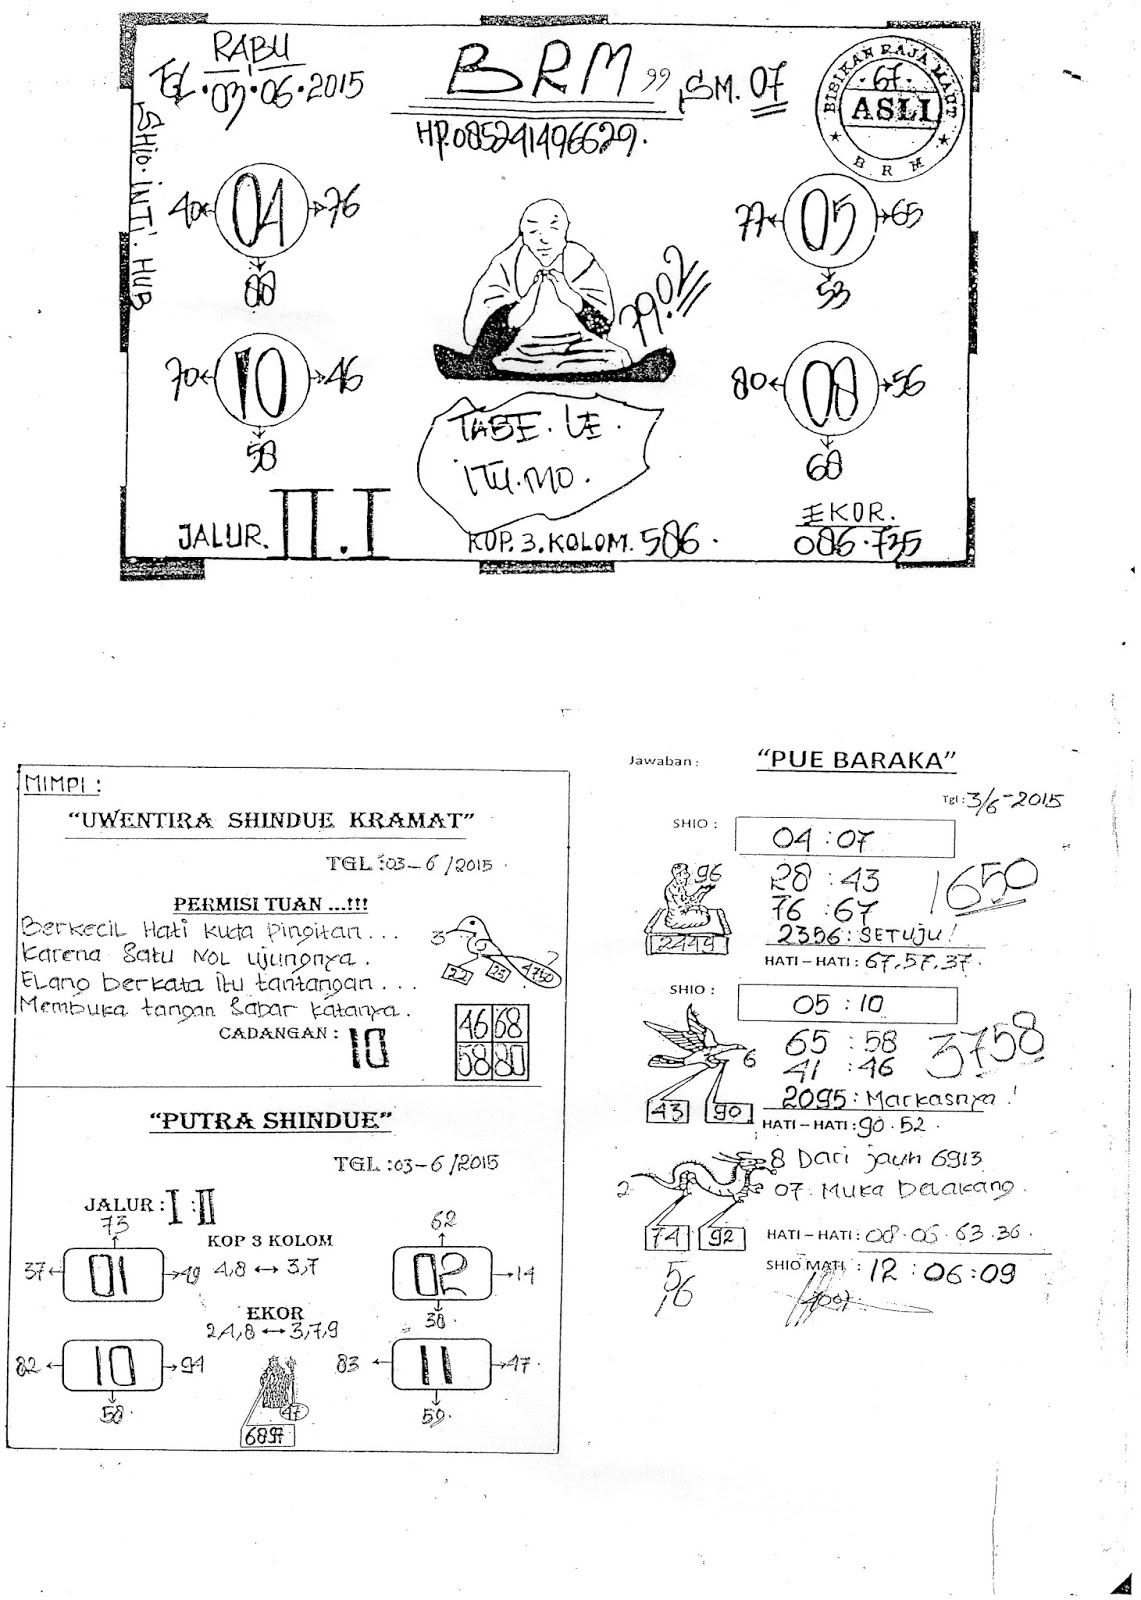 RABU
TGL. 03.06.2015
BRM"
SM. 07
HP.085241496629.
BISIKAN RAJA MAUT
67
ASLI
B R M
SHIO. INTI. HUB
40 04 76
88
77 05 65
53
79.02
70 10 46
58
80 08 56
68
TABE. LE.
ITU.MO.
JALUR. II.I
KOP. 3. KOLOM. 586.
EKOR.
086.735
MIMPI :
"UWENTIRA SHINDUE KRAMAT"
TGL :03-6/2015.
PERMISI TUAN ...!!!
Berkecil Hati kuda Pingitan...
Karena Satu NOL ujungnya.
ELang berkata itu tantangan....
Membuka tangan Sabar katanya.
3
22 23 4750
CADANGAN : 10
46 68
58 80
"PUTRA SHINDUE"
TGL :03-6/2015
JALUR : I :II
KOP 3 KOLOM
4,8 ↔ 3,7
73
37 01 49
62
02 14
38
EKOR
2,4,8 ↔ 3,7,9
82 10 94
58.
83 11 47.
59.
47
6897
Jawaban : "PUE BARAKA"
Tgl : 3/6-2015
SHIO : 04 : 07
96
2449
28 : 43
76 : 67
1650
2356: SETUJU!
HATI-HATI : 67,57,37.
SHIO : 05 : 10
65 : 58
41 : 46
3758
6
43 90
2095: Markasnya!
HATI-HATI : 90.52.
8 Dari jauh 6913
07. Muka Belakang.
2
74 92
HATI-HATI : 08.06.63.36.
SHIO MATI : 12 : 06 : 09
5,6